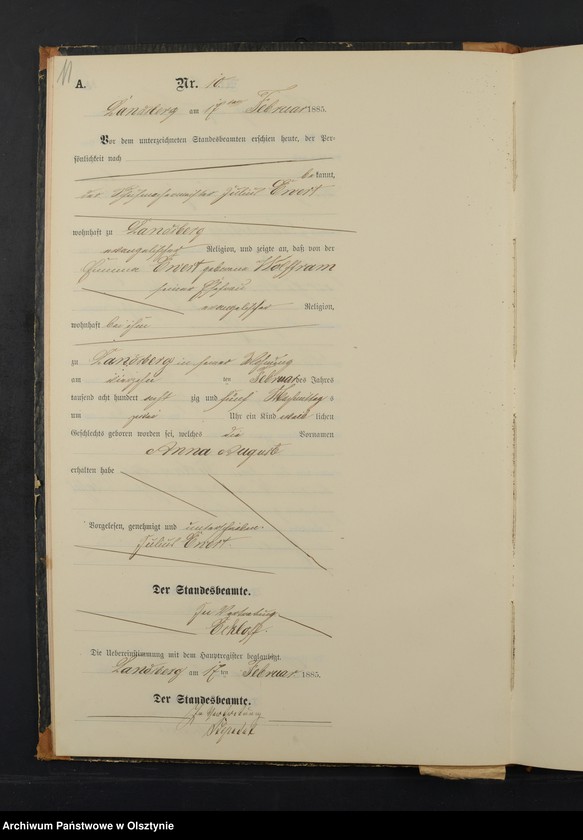 11
A. Nr. 10
Landsberg am 17 ten Februar 1885.
Vor dem unterzeichneten Standesbeamten erschien heute, der Per-
sönlichkeit nach
bekannt,
der Julius Ewert
wohnhaft zu Landsberg
evangelischer Religion, und zeigte an, daß von der
Ewert geborene Wolffram
seiner Ehefrau
evangelischer Religion,
wohnhaft bei ihm
zu Landsberg in seiner Wohnung
am ten Februar des Jahres
tausend acht hundert acht zig und fünf Nachmittags
um Uhr ein Kind weib lichen
Geschlechts geboren worden sei, welches die Vornamen
Anna Auguste
erhalten habe
Vorgelesen, genehmigt und unterschrieben.
Julius Ewert
Der Standesbeamte.
In Vertretung
Die Uebereinstimmung mit dem Hauptregister beglaubigt.
Landsberg am 17 ten Februar 1885.
Der Standesbeamte.
In Vertretung
Archiwum Państwowe w Olsztynie